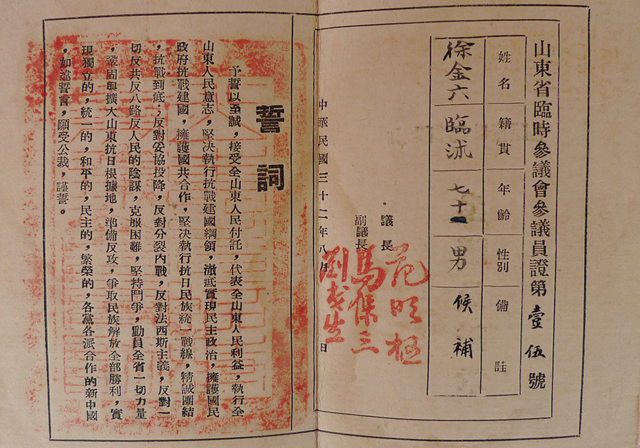 山東省臨時參議會參議員證第壹伍號
姓名 籍貫 年齡 性別 備註
徐金六 臨沭 七十一 男 候補
議長 范明樞
副議長 馬保三
劉民生
中華民國三十二年八月 日
誓詞
予誓以至誠，接受全山東人民付託，代表全山東人民利益，執行全
山東人民意志，堅決執行抗戰建國綱領，澈底實現民主政治，擁護國民
政府抗戰建國，擁護國共合作，堅決執行抗日民族統一戰線，精誠團結
，抗戰到底；反對妥協投降，反對分裂內戰，反對法西斯主義，反對一
切反共反八路反人民的陰謀，克服困難，堅持鬥爭，動員全省一切力量
，鞏固與擴大山東抗日根據地，準備反攻，爭取民族解放全部勝利，實
現獨立的，統一的，和平的，民主的，繁榮的，各黨各派合作的新中國
，如違誓言，願受公裁，謹誓。